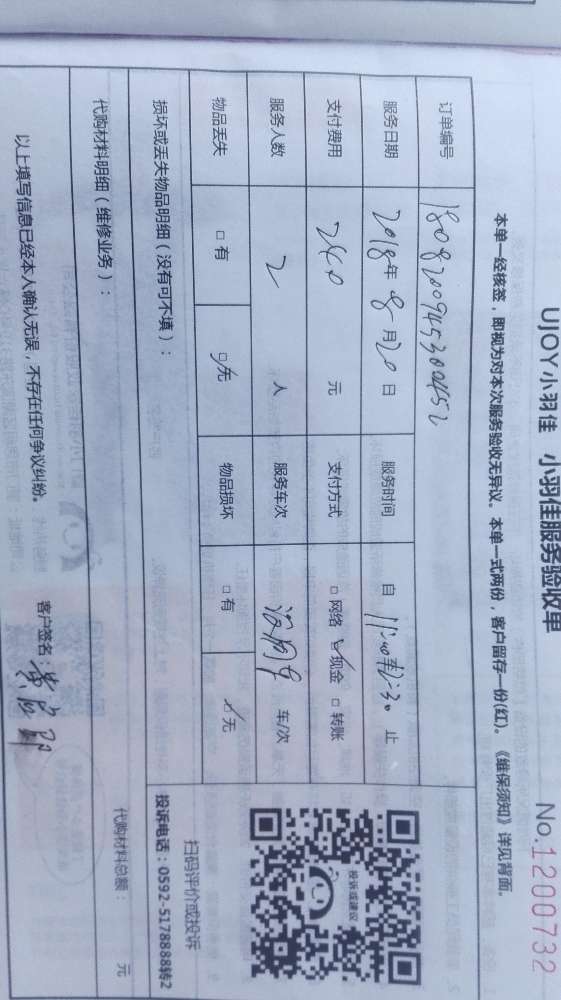 UJOY小羽佳 小羽佳服务验收单 No.1200732
本单一经核签，即视为对本次服务验收无异议。本单一式两份，客户留存一份(红)。《维保须知》详见背面。
订单编号 1808200945300452
服务日期 2018年8月20日 服务时间 自 11:00 至12:30 止
支付费用 240 元 支付方式 □网络 ☑现金 □转账
服务人数 2 人 服务车次 没用车 车/次
物品丢失 □有 ☑无 物品损坏 □有 ☑无
扫码评价或投诉
投诉或建议
投诉电话：0592-5178888转2
损坏或丢失物品明细（没有可不填）：
代购材料明细（维修业务）： 代购材料总额： 元
以上填写信息已经本人确认无误，不存在任何争议纠纷。 客户签名：